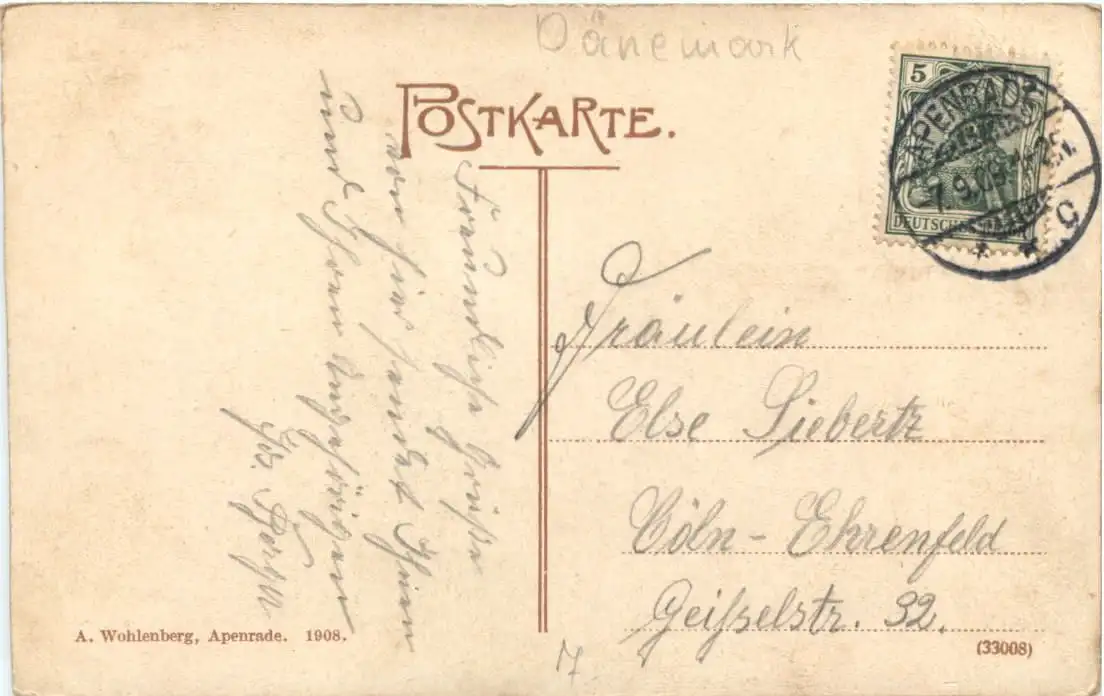 Dänemark
POSTKARTE.
5
DEUTSCHES
APENRADE
7.9.09.
* * c
Freundliche Grüße
von hier sendet Ihnen
und Ihren Angehörigen
Fräulein
Else Siebertz
Cöln-Ehrenfeld
Geißelstr. 32.
A. Wohlenberg, Apenrade. 1908.
(33008)